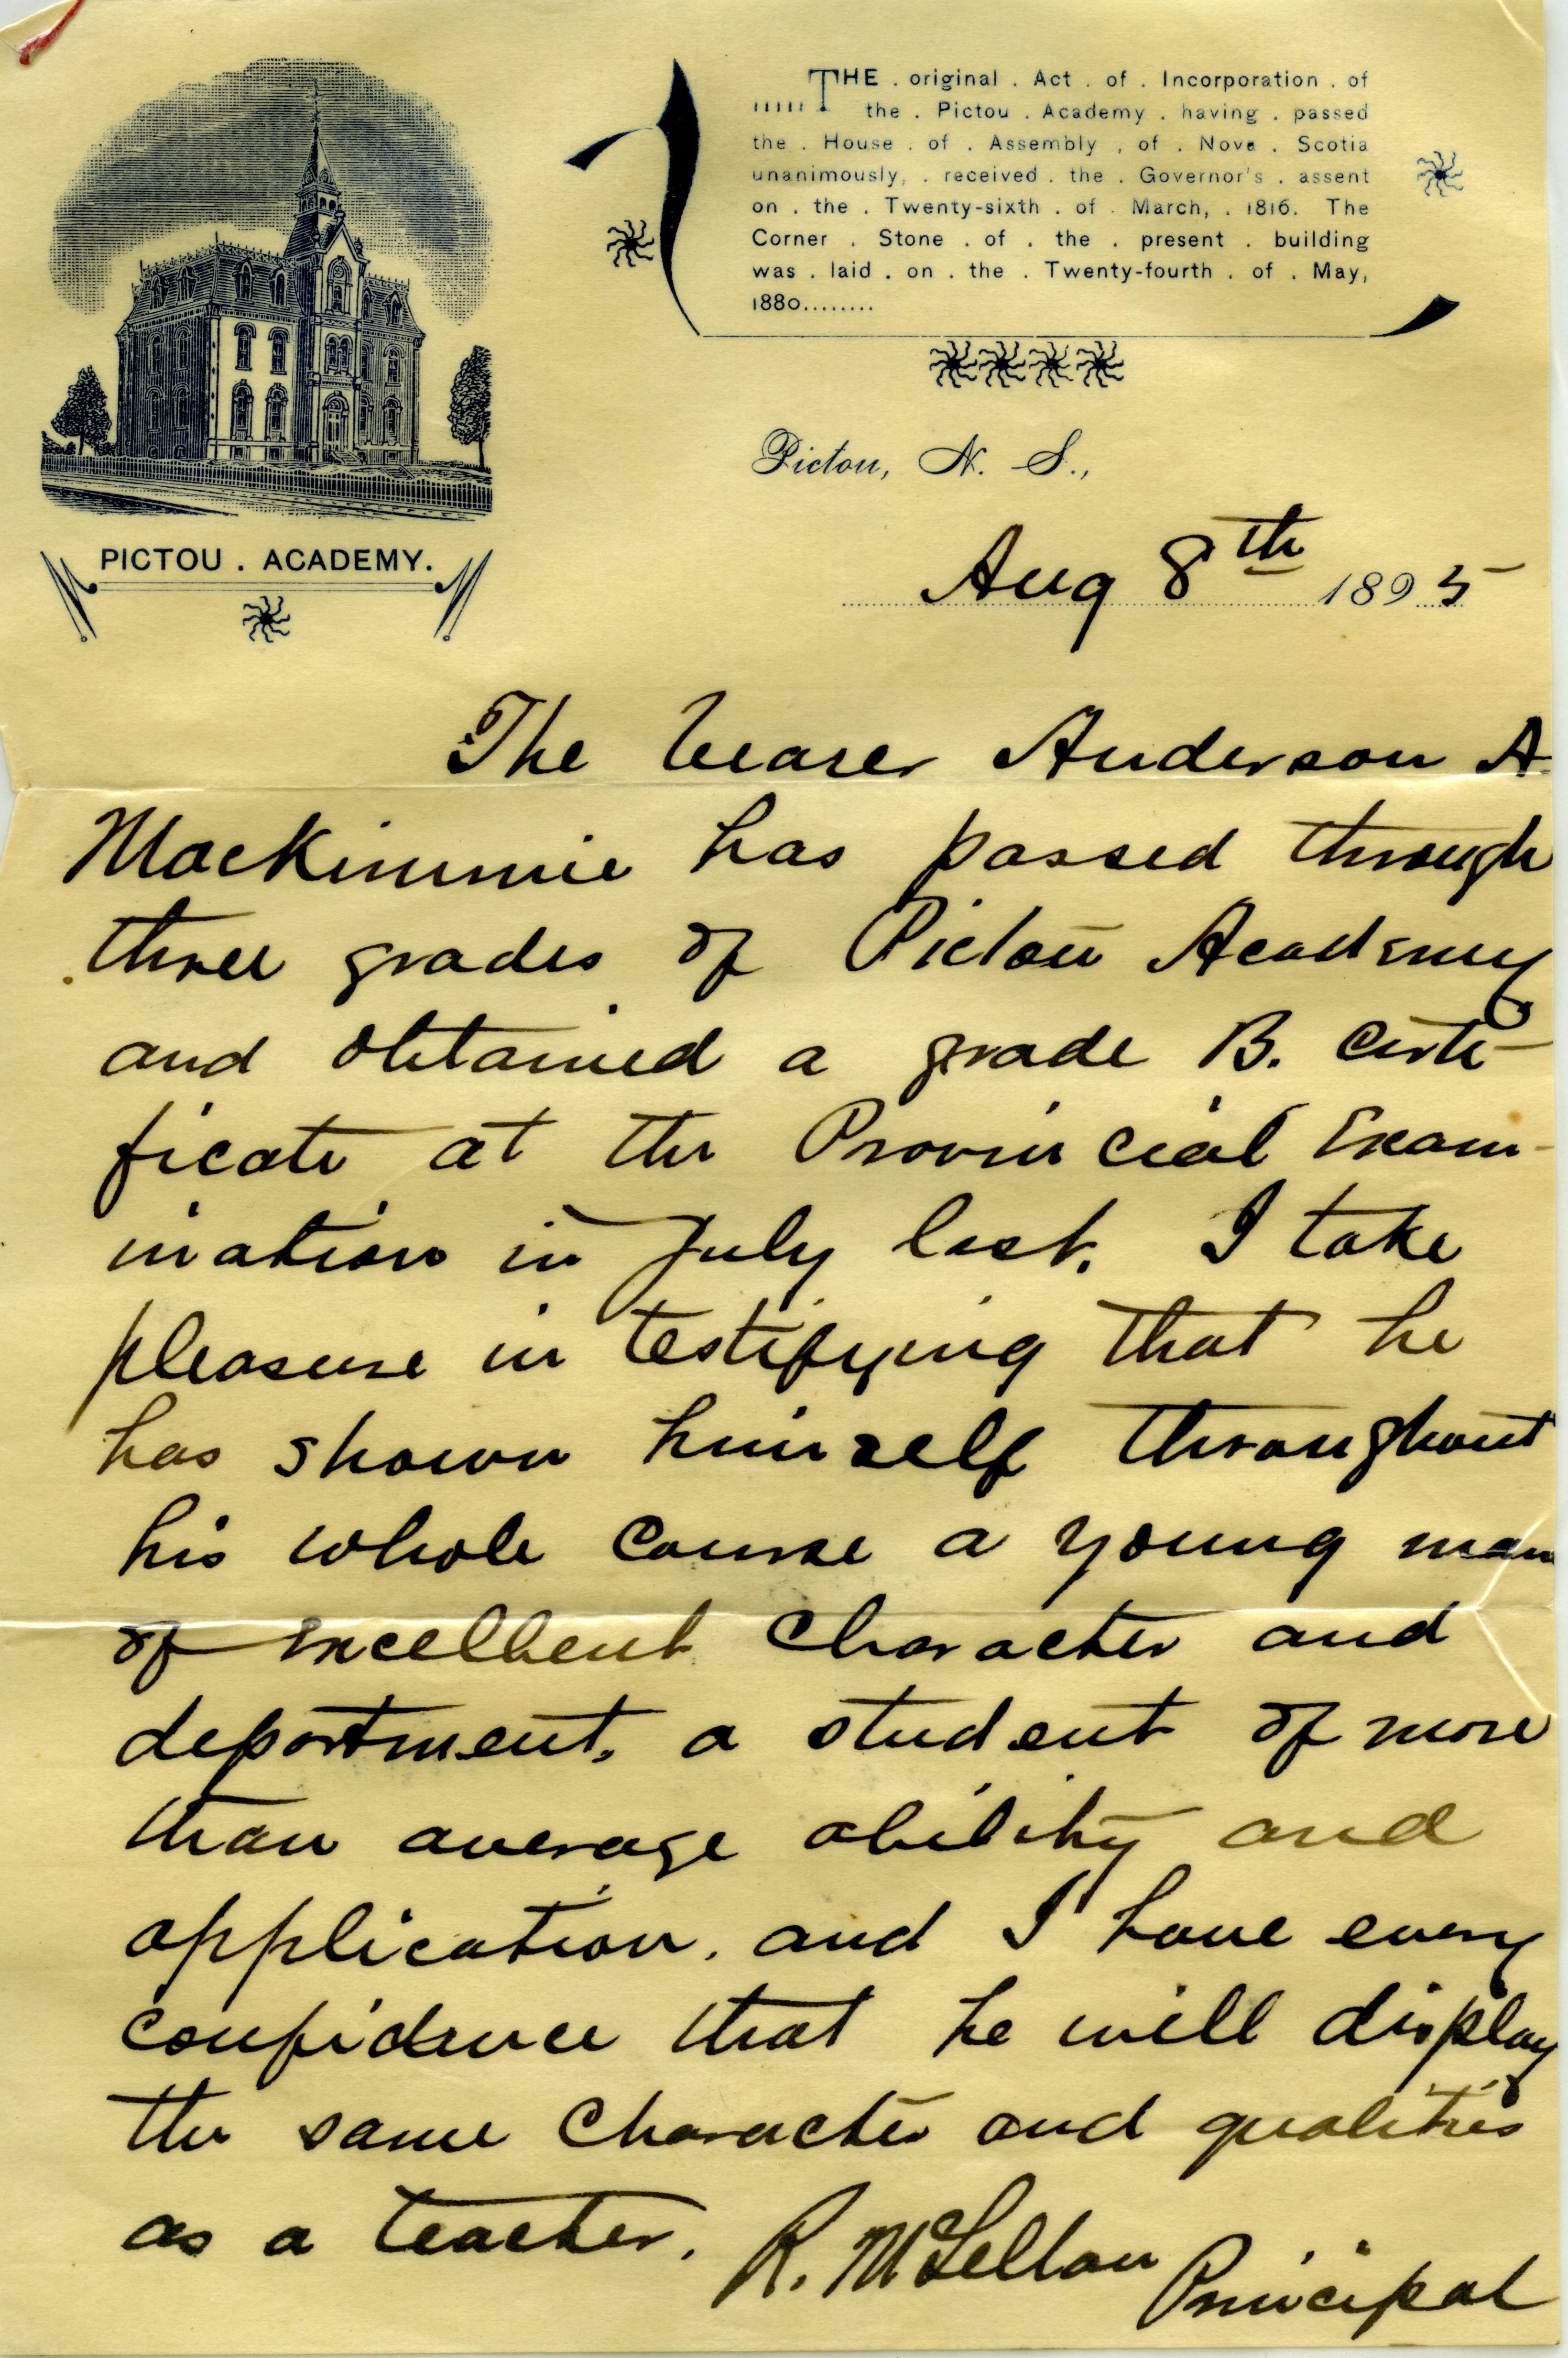 THE . original . Act . of . Incorporation . of
the . Pictou . Academy . having . passed
the . House . of . Assembly , of . Nova . Scotia
unanimously, . received . the . Governor's . assent
on . the . Twenty-sixth . of . March, . 1816. The
Corner . Stone . of . the . present . building
was . laid . on . the . Twenty-fourth . of . May,
1880........
PICTOU . ACADEMY.
Pictou, N. S.,
Aug 8th 1895
The bearer Anderson A
MacKimmie has passed through
three grades of Pictou Academy
and obtained a grade B. certi-
ficate at the Provincial Exam-
ination in July last. I take
pleasure in testifying that he
has shown himself throughout
his whole course a young man
of excellent character and
deportment, a student of more
than average ability and
application, and I have every
confidence that he will display
the same character and qualities
as a teacher. R. McLellan
Principal